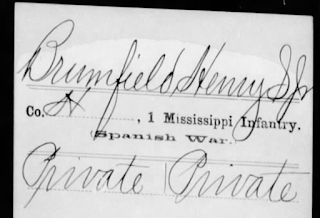 Brumfield Henry S Jr
Co. H, 1 Mississippi Infantry.
(Spanish War.)
Private | Private